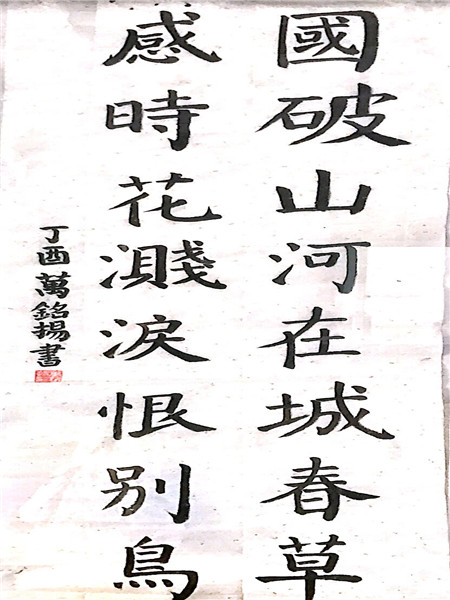 國破山河在城春草
感時花濺淚恨別鳥
丁酉萬銘揚書